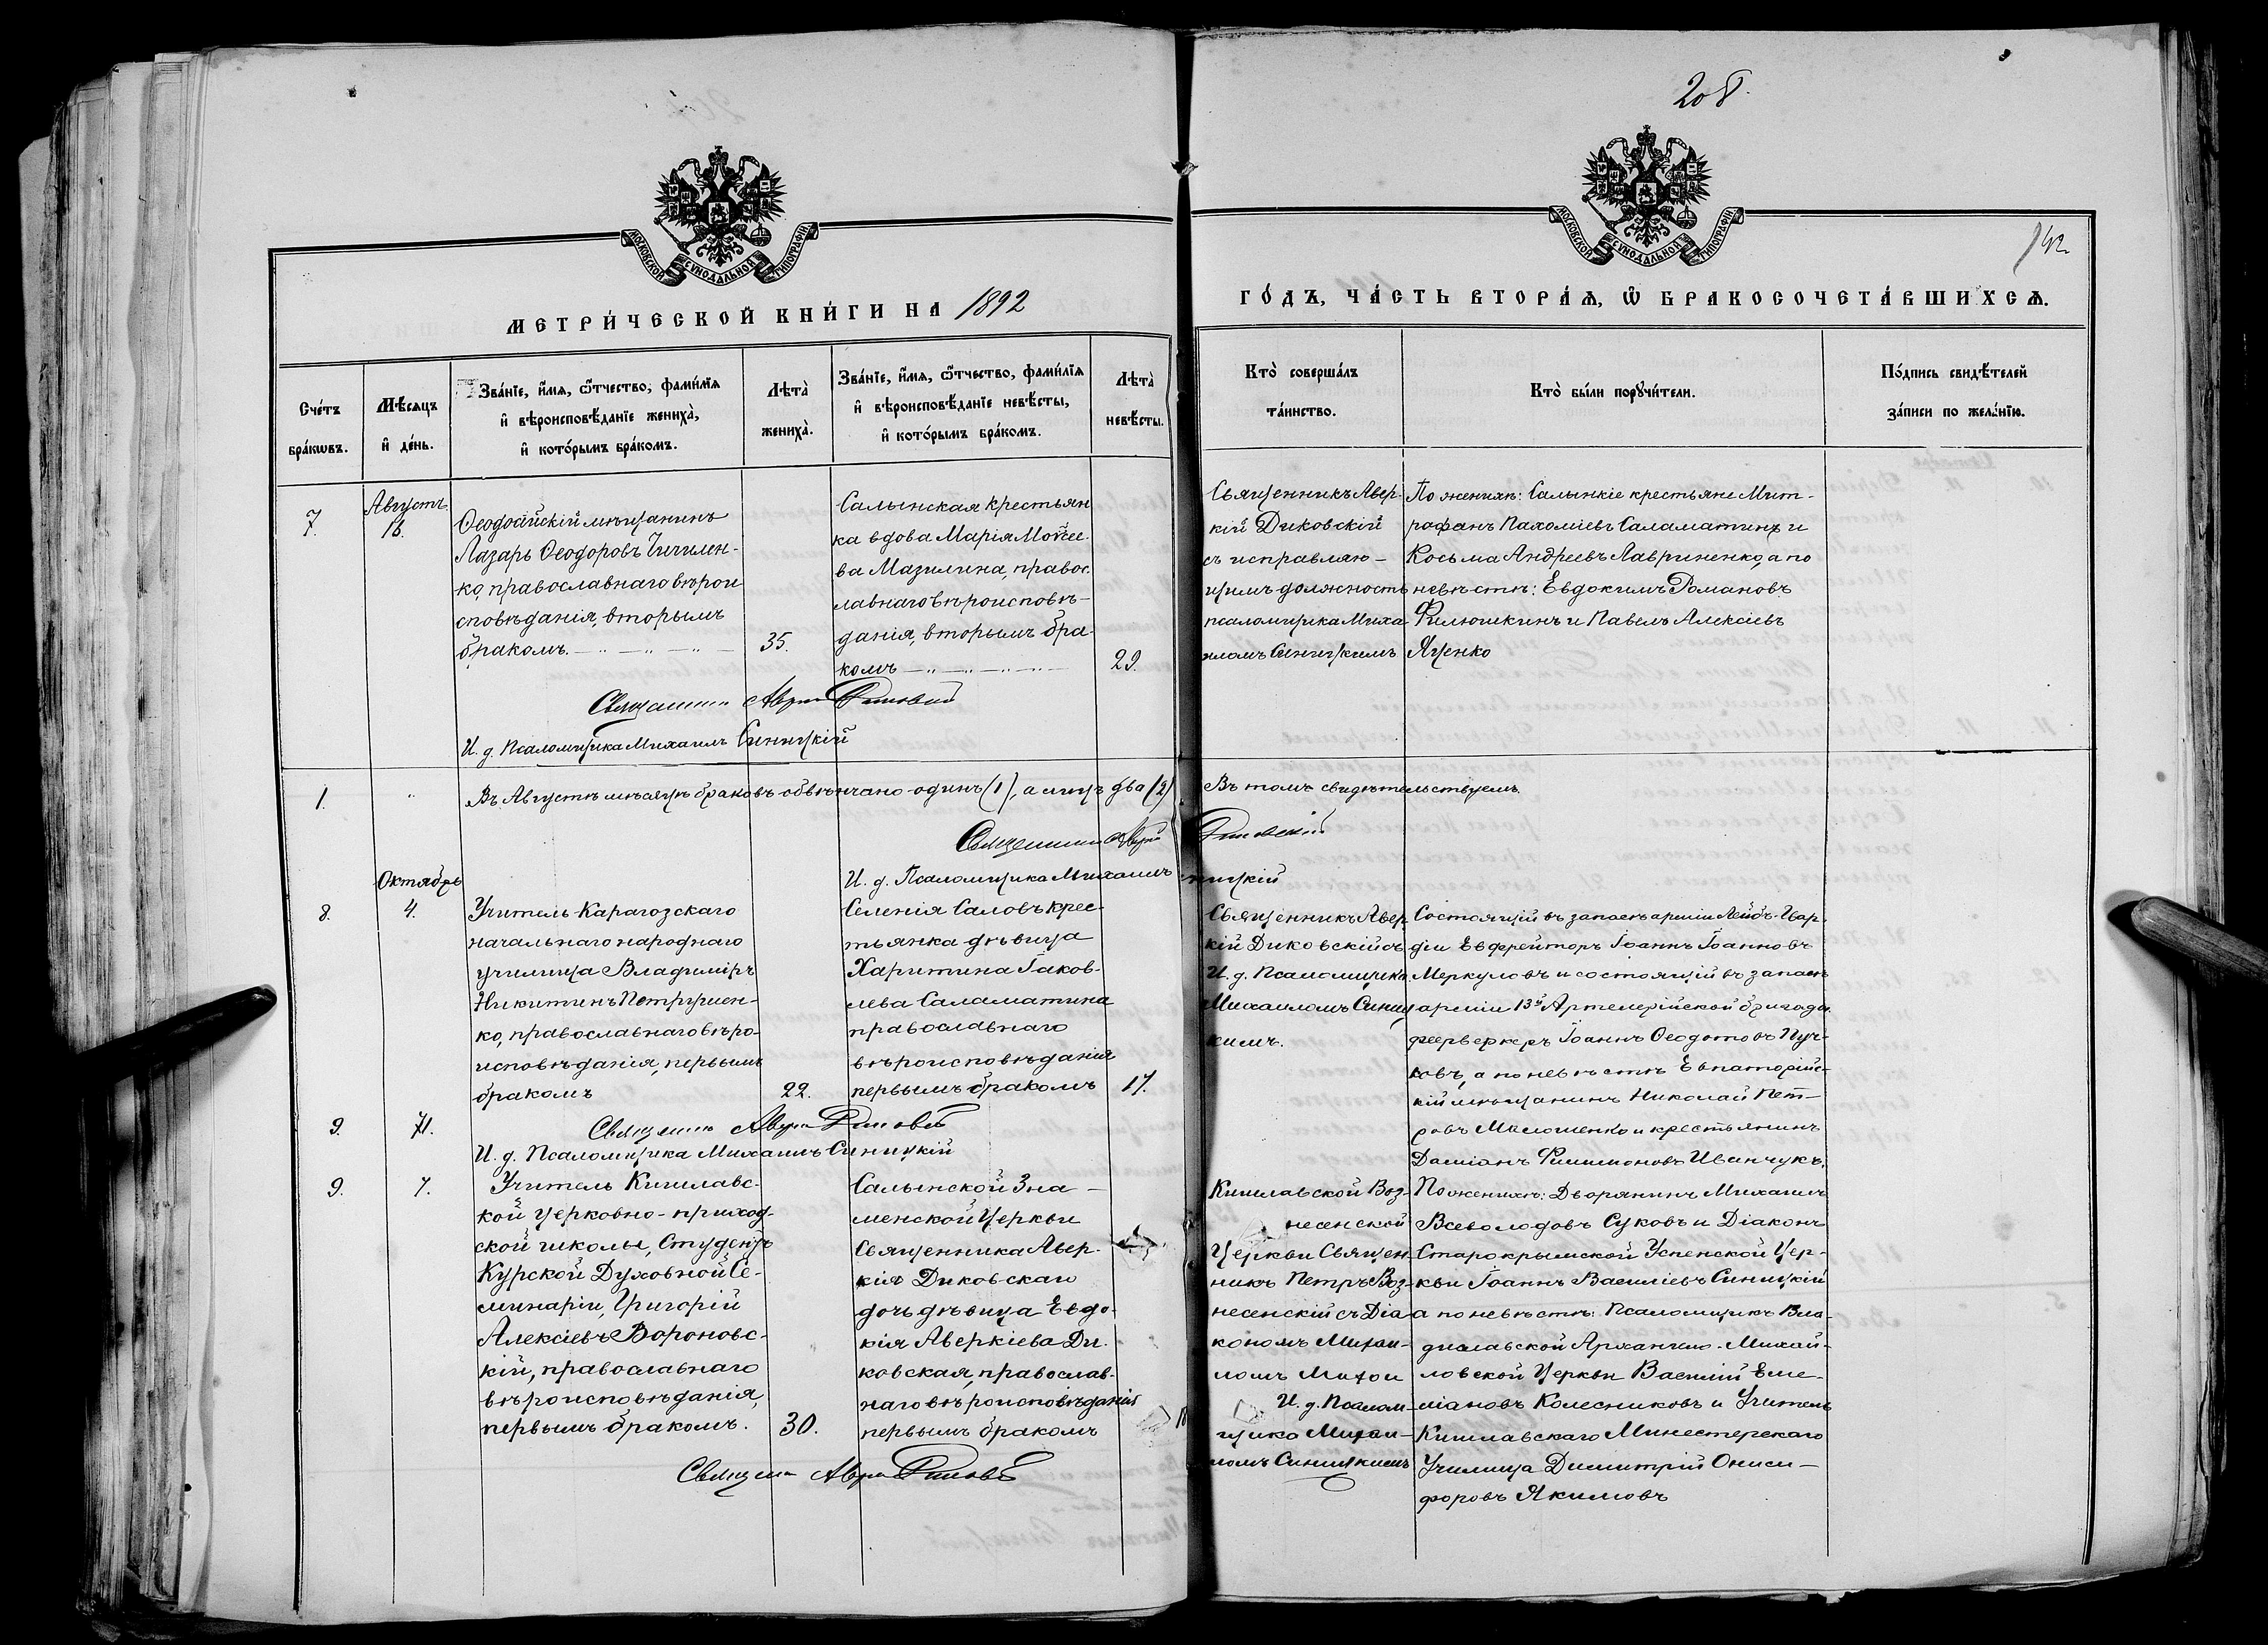 208.
142
МОСКОВСКОЙ СУНОДАЛЬНОЙ ТИПОГРАФІИ
МОСКОВСКОЙ СУНОДАЛЬНОЙ ТИПОГРАФІИ
МЕТРИ́ЧЕСКОЙ КНИ́ГИ НА 1892
ГО́ДЪ, ЧА́СТЬ ВТОРА́Ѧ, Ѽ БРАКОСОЧЕТА́ВШИХСѦ.
Сче́тъ бра́кѡвъ.
Мѣ́сѧцъ и҆ де́нь.
Зва́нїе, и҆́мѧ, ѻ҆́тчество, фами́лїѧ
и҆ вѣроисповѣ́данїе жениха̀,
и҆ кото́рымъ бра́комъ.
Лѣта̀ жениха̀.
Зва́нїе, и҆́мѧ, ѻ҆́тчество, фами́лїѧ
и҆ вѣроисповѣ́данїе невѣ́сты,
и҆ кото́рымъ бра́комъ.
Лѣта̀ невѣ́сты.
Кто̀ соверша́лъ
та́инство.
Кто̀ бы́ли порꙋчи́тели.
По́дпись свидѣ́телей
за́писи по жела́нїю.
7.
Августъ
16.
Ѳеодосійскій мѣщанинъ
Лазарь Ѳеодоровъ Чичилен-
ко, православнаго вѣрои
сповѣданія, вторымъ
бракомъ.
35.
Салынская крестьян
ка вдова Марія Моѵсее
ва Мазилина, правос
лавнаго вѣроисповѣ-
данія, вторымъ бра
комъ
29.
Священникъ Авер
кій Диковскій
съ исправляю-
щимъ должность
псаломщика Миха
иломъ Синицкимъ
По женихѣ: Салынкіе крестьяне Мит-
рофанъ Пахоміевъ Саламатинъ и
Косьма Андреевъ Лавриненко, а по
невѣстѣ: Евдокимъ Романовъ
Филюшкинъ и Павелъ Алексіевъ
Яценко
Священникъ Аверкій Диковскій
И. д. Псаломщика Михаилъ Синицкій
1.
Въ Августѣ мѣсяцѣ браковъ обвѣнчано один (1), а лицъ два (2) Въ томъ свидѣтельствуемъ.
Священникъ Аверкій Диковскій
И. д. Псаломщика Михаилъ Синицкій
8.
Октябрь
4.
Учитель Карагозскаго
начальнаго народнаго
училища Владиміръ
Никитинъ Петрушен-
ко, православнаго вѣро-
исповѣданія, первымъ
бракомъ
22.
Селенія Саловъ крес-
тьянка дѣвица
Харитина Іаков-
лева Саламатина
православнаго
вѣроисповѣданія
первымъ бракомъ
17.
Священникъ Авер
кій Диковскій съ
И. д. Псаломщика
Михаиломъ Синиц
кимъ.
Состоящій въ запасѣ арміи Лейбъ-Гвар
діи Ефрейторъ Іоаннъ Іоанновъ
Меркуловъ и состоящій въ запасѣ
арміи 13й Артелерійской бригады
феерверкеръ Іоаннъ Ѳеодотовъ Пуч-
ковъ, а по невѣстѣ Евпаторійс-
кій мѣщанинъ Николай Пет-
ровъ Милошенко и крестьянинъ
Даміанъ Филимоновъ Иванчукъ.
9.
Священникъ Аверкій Диковскій
И. д. Псаломщика Михаилъ Синицкій
9.
7.
Учитель Кишлавс-
кой Церковно-приход-
ской школы, Студентъ
Курской Духовной Се-
минаріи, Григорій
Алексіевъ Вороновс-
кій, православнаго
вѣроисповѣданія,
первымъ бракомъ.
30.
Салынской Зна-
менской Церкви
Священника Авер-
кія Диковскаго
дочь дѣвица Евдо-
кія Аверкіева Ди-
ковская, православ-
наго вѣроисповѣданія
первымъ бракомъ
Кишлавской Воз-
несенской
Церкви Священ-
никъ Петръ Воз-
несенскій съ Діа
кономъ Михаи-
ломъ
И. д. Псалом-
щика Михаи-
ломъ Синицкимъ
По женихѣ: Дворянинъ Михаилъ
Всеволодовъ Суковъ и Діаконъ
Старокрымской Успенской Цер-
кви Іоаннъ Василіевъ Синицкій
а по невѣстѣ: Псаломщикъ Вла-
диславской Архангело-Михай-
ловской Церкви Василій Еме-
ліановъ Колесниковъ и Учитель
Кишлавскаго Минестерскаго
Училища Димитрій Ониси-
форовъ Якимовъ
Священникъ Аверкій Диковскій